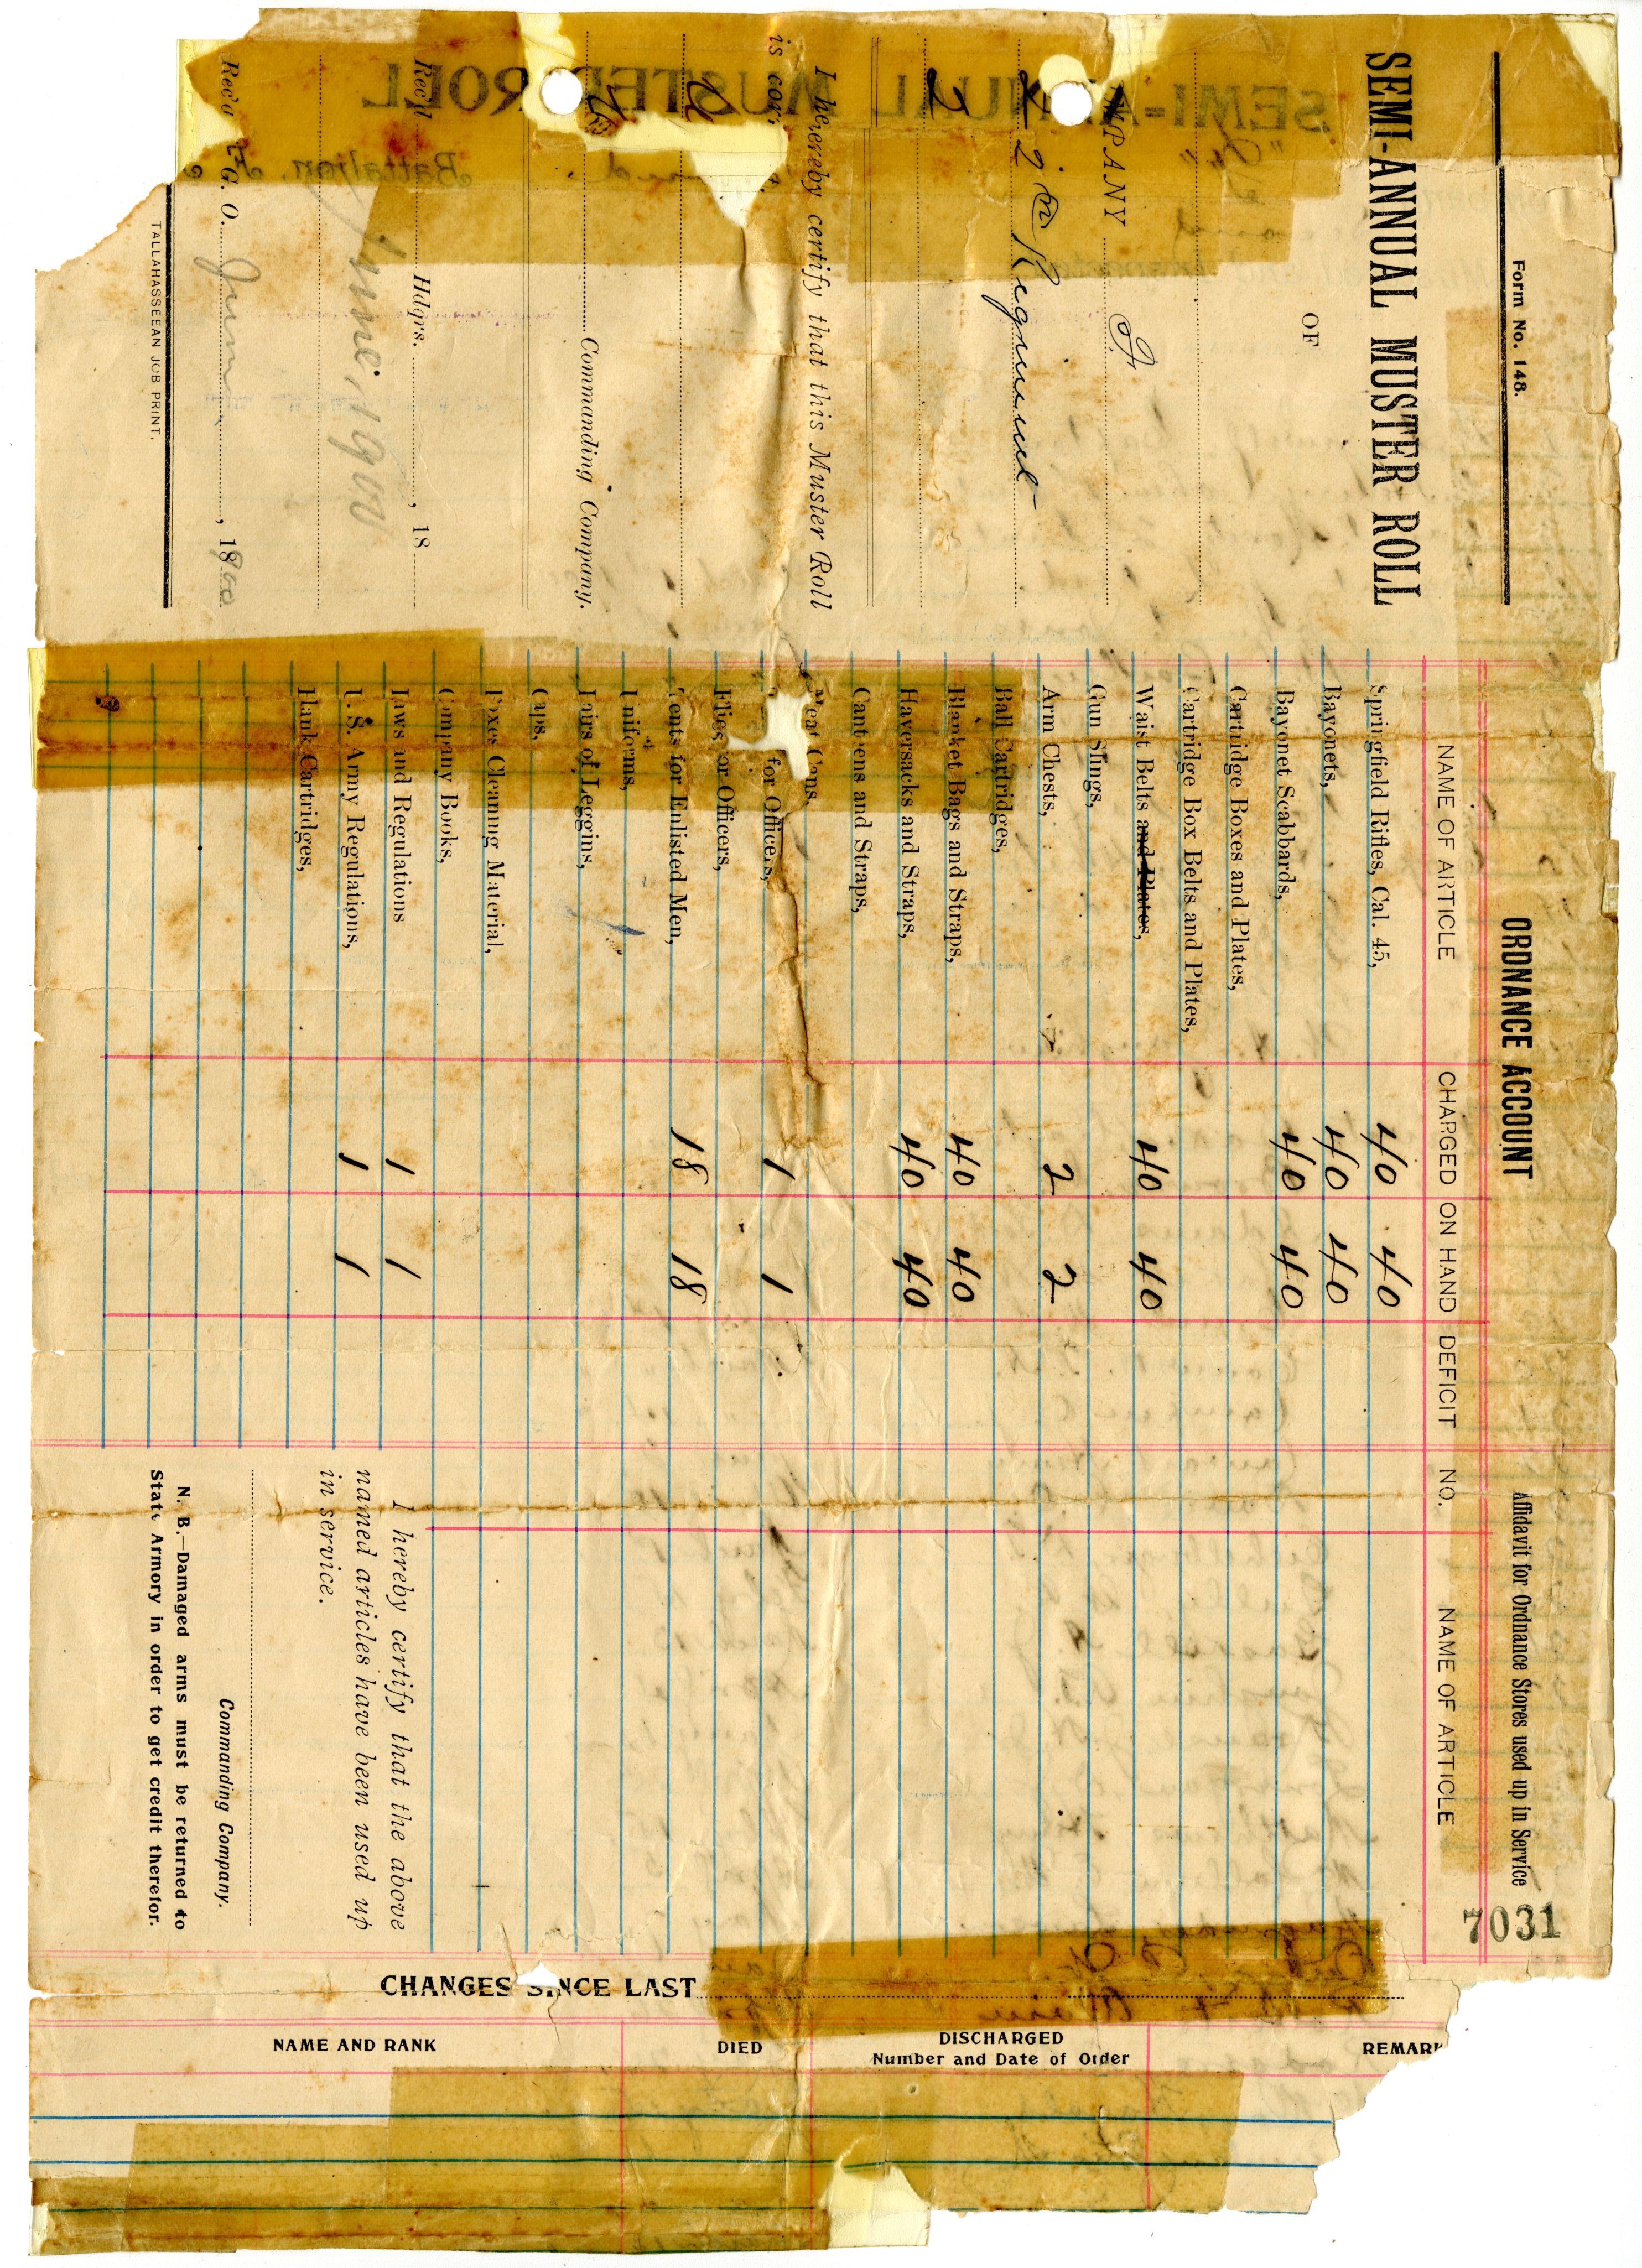 Form No. 148.
SEMI-ANNUAL MUSTER ROLL
OF
MPANY A
2 Regiment
I hereby certify that this Muster Roll
is cor
Commanding Company.
Rec'd Hdqrs. , 18
June 1900
Rec'd G. O. , 1900
TALLAHASSEEAN JOB PRINT.
ORDNANCE ACCOUNT
NAME OF ARTICLE CHARGED ON HAND DEFICIT
Springfield Rifles, Cal. 45, 40 40
Bayonets, 40 40
Bayonet Scabbards, 40 40
Cartridge Boxes and Plates,
Cartridge Box Belts and Plates,
Waist Belts and Plates, 40 40
Gun Slings,
Arm Chests, 2 2
Ball Cartridges,
Blanket Bags and Straps, 40 40
Haversacks and Straps, 40 40
Canteens and Straps,
Meat Cans,
for Officers, 1 1
Flies for Officers,
Tents for Enlisted Men, 18 18
Uniforms,
Pairs of Leggins,
Caps,
Boxes Cleaning Material,
Company Books,
Laws and Regulations 1 1
U. S. Army Regulations, 1 1
Blank Cartridges,
Affidavit for Ordnance Stores used up in Service
7031
NO. NAME OF ARTICLE
I hereby certify that the above
named articles have been used up
in service.
Commanding Company.
N. B.—Damaged arms must be returned to
State Armory in order to get credit therefor.
CHANGES SINCE LAST
NAME AND RANK DIED DISCHARGED REMARK
Number and Date of Order